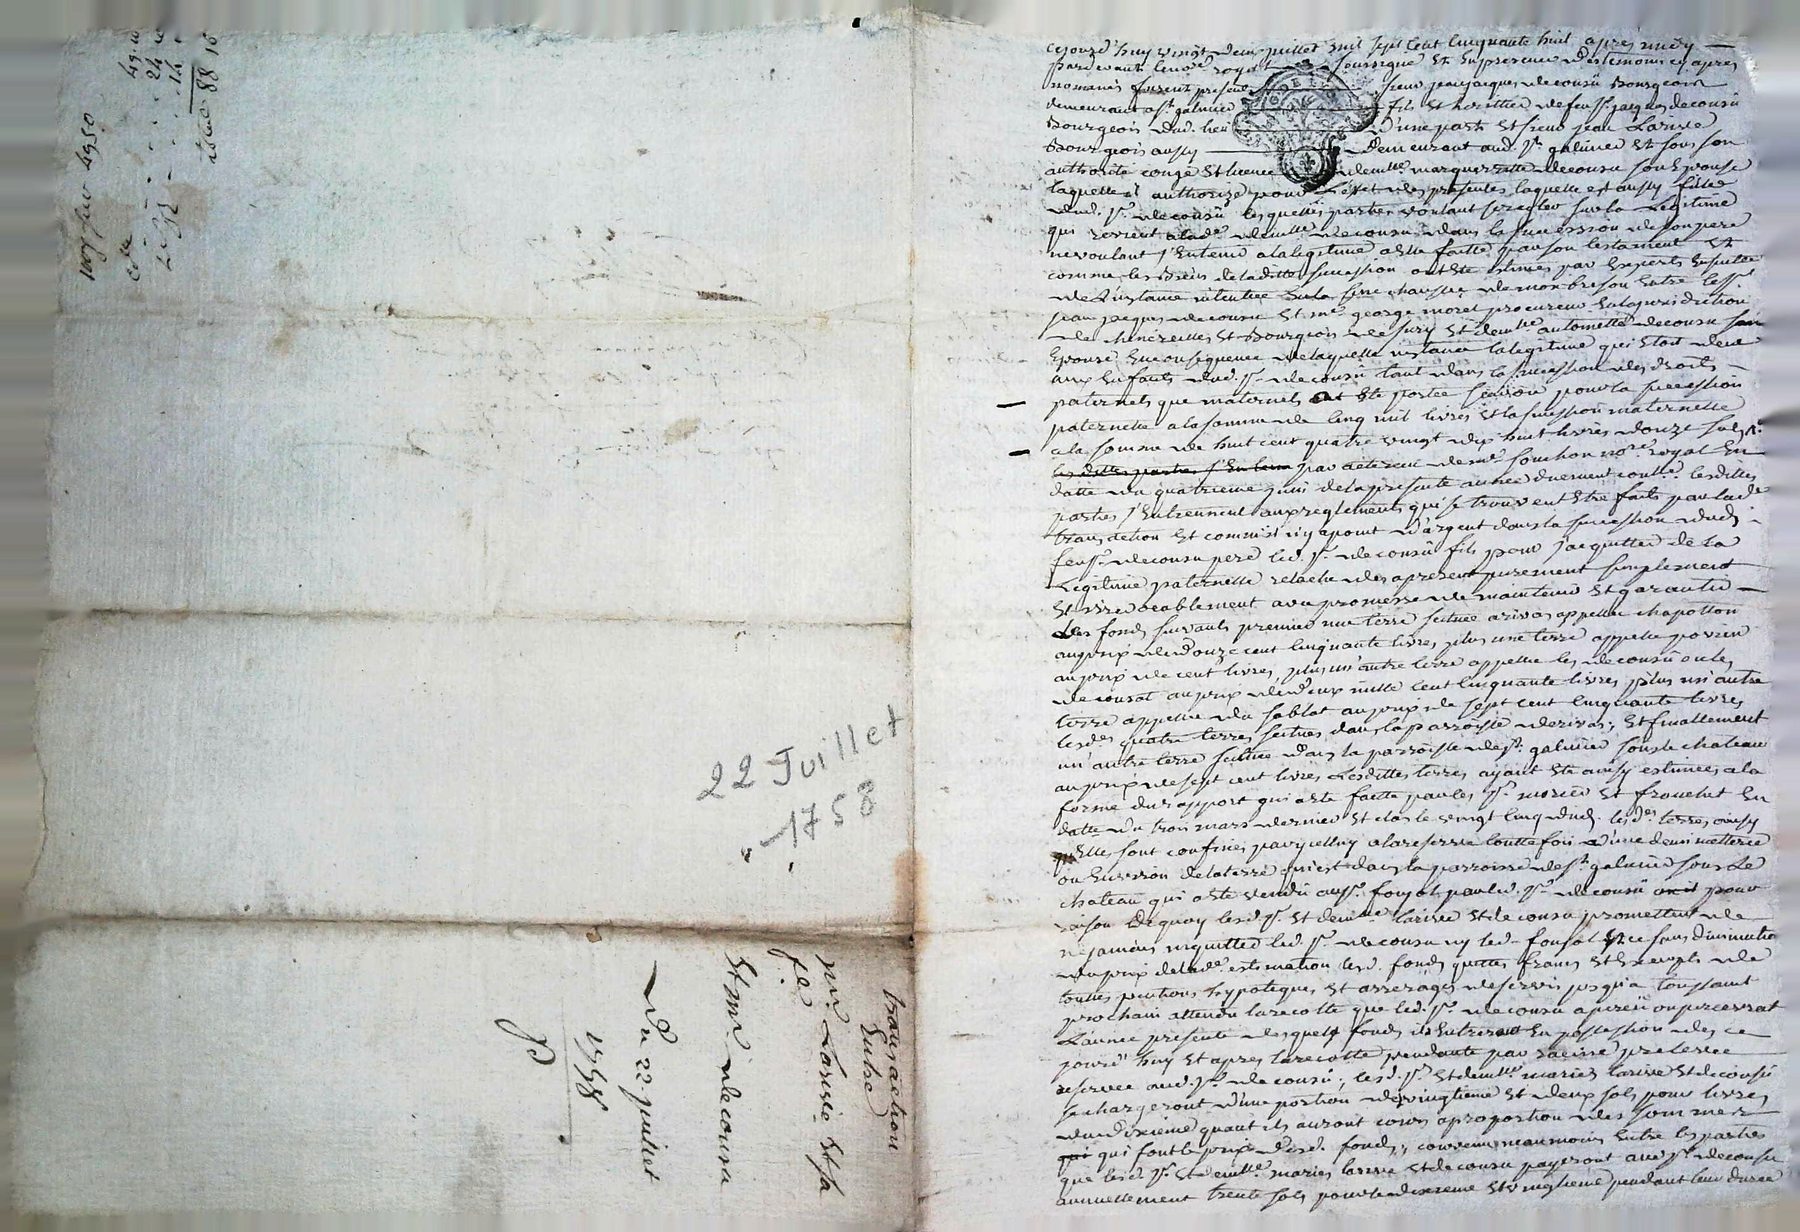 cejourd'huy vingt deux juillet mil sept cent cinquante huit apres midy
pardevant le no.re royal soussigné et en presence des temoins cy apres
nommés furent presents sieur jean jacques decousu bourgeois
demeurant a st galmier fils et heritier de feu sr jacques decousu
bourgeois dud. lieu d'une part et sieur jean Larivé
bourgeois aussy demeurant aud. st galmier et sous son
authorité congé et licence demlle margueritte decousu son epouse
laquelle il authorize pour l'effet des presentes laquelle est aussy fille
dud. sr decousu lesquelles parties voulant regler sur la legitime
qui revient a lade demlle decousu dans la succession de son pere
ne voulant s'en tenir a la legitime a elle faitte par son testament et
comme les biens de laditte succession ont ete estimés par experts en suitte
de l'instance intentée en la senechaussée de montbrison entre led. sr
jean jacques decousu et me george moret procureur en la jurisdiction
de chenereilles et bourgeois de sury et demlle antoinette decousu son
epouse en consequence de laquelle instance la legitime qui etoit deue
aux enfants dud. sr decousu tant dans la succession des droits
paternels que maternels ont ete portée scavoir pour la succession
paternelle a la somme de cinq mil livres et la succession maternelle
a la somme de huit cent quatre vingt dix huit livres douze sols
les dittes parties s'en tenu par acte receu de me souchon nore royal en
datte du quatrieme juin de la presente année duement conllé lesdittes
parties s'en tiennent aux reglements qui se trouvent etre faits par lade
transaction et comme il n'y a point d'argent dans la succession dud.
feu sr decousu pere led. sr decousu fils pour s'acquitter de la
legitime paternelle relache des apresent purement simplement
et irrevocablement avec promesse de maintenir et garantir
les fonds suivants premier une terre scituée a rivas appellée chapotton
au prix de douze cent cinquante livres, plus une terre appellée
au prix de cent livres, plus un'autre terre appellée les decousu ou les
decousat au prix de deux mille cent cinquante livres plus un'autre
terre appellée du sablot au prix de sept cent cinquante livres
lesdes quatre terres scituées dans la parroisse de rivas, et finallement
un'autre terre scituée dans la parroisse de st galmier sous le chateau
au prix de sept cent livres Lesdittes terres ayant ete ainsy estimées a la
forme du rapport qui a ete faitte par les srs morier et frouchet en
datte du trois mars dernier et clos le vingt cinq dud. lesdes terres ainsy
qu'elles sont confinées par yceluy a la reserve touttefois d'une demi metterée
ou environ de la terre qui est dans la parroisse de st galmier sous le
chateau qui a ete vendu au sr fonjol par led. sr decousu pour
raison de quoy lesd. sr et demlle Larivé et decousu promettent de
n'jamais inquietter led. sr decousu ny led. fonjol et ce sans diminution
du prix de lade estimation lesd. fonds quittes francs et exempts de
touttes pentions hypoteques et arrerages de servis jusqu'a toussaint
prochain attendu la recolte que led. sr decousu a pereu ou percevrat
l'année presente desquels fonds ils entreront en possession des ce
jourd'huy et apres la recolte pendante par racine prelevée
reservée aud. sr decousu; lesd. sr et demlle mariés larivé et decousu
se chargeront d'une portion de vingtieme et deux sols pour livres
du dixieme quant ils auront cours a proportion des sommes
qui qui font le prix desd. fonds, convenu neanmoins entre les parties
que lesd. sr et demlle mariés larivé et decousu payeront aud sr decousu
annuellement trente sols pour le dixieme et vingtieme pendant leur durée
transaction
Entre
sieur Larivé et sa
fe
et sieur decousu
Du 22 juillet
1758
22 Juillet
1758